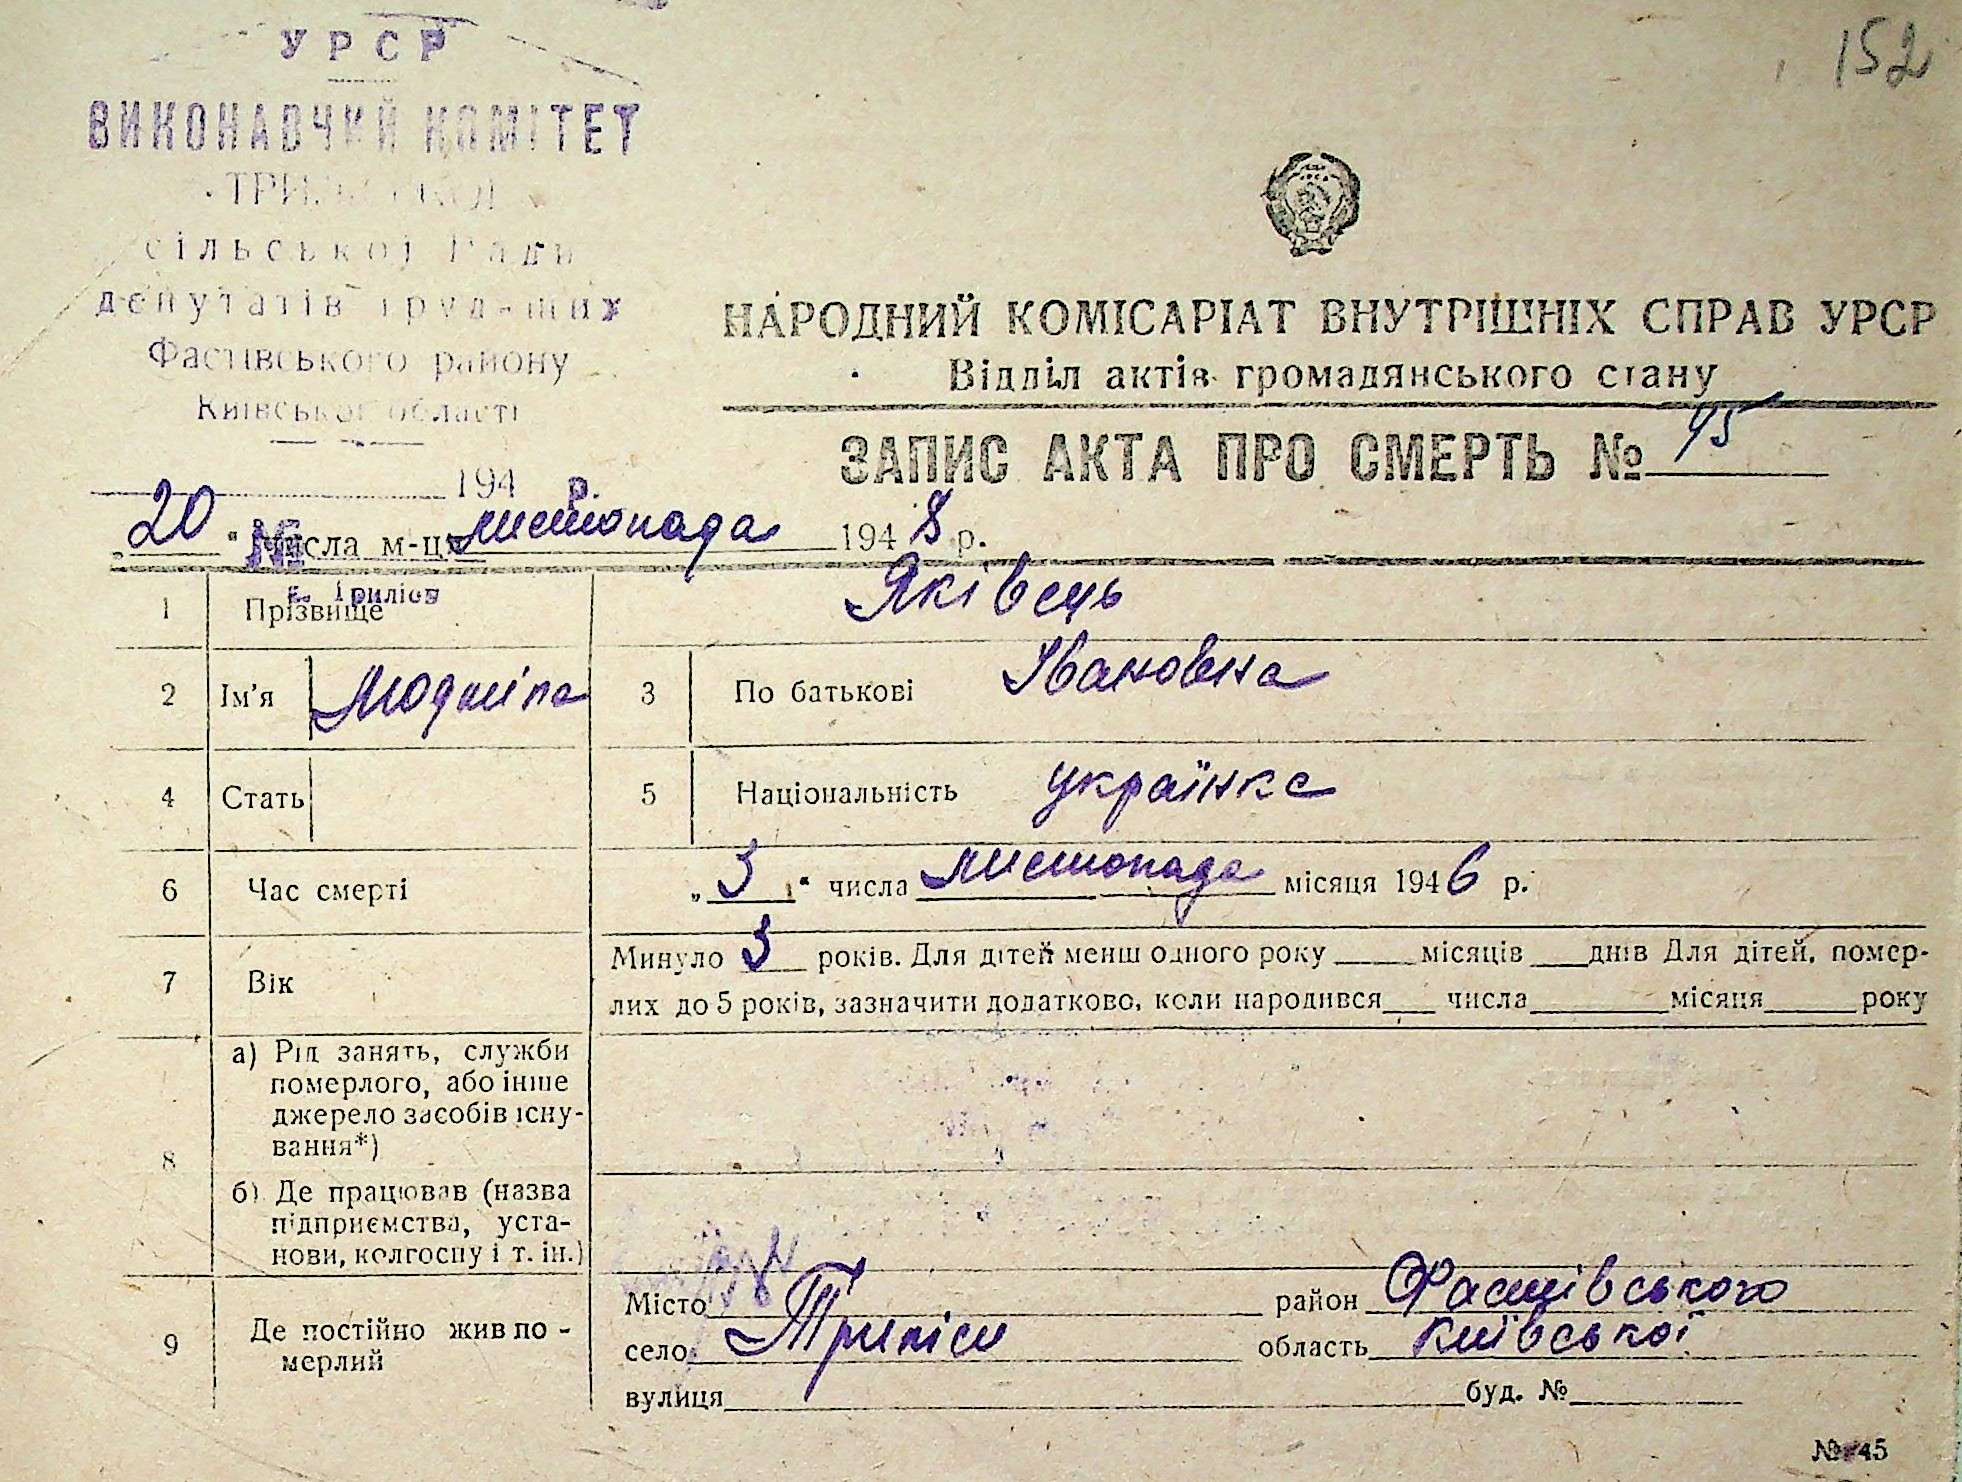 152
УРСР
ВИКОНАВЧИЙ КОМІТЕТ
сільської Ради
депутатів трудящих
Фастівського району
Київської області
194 р.
№
с. Триліси
НАРОДНИЙ КОМІСАРІАТ ВНУТРІШНІХ СПРАВ УРСР
Відділ актів громадянського стану
ЗАПИС АКТА ПРО СМЕРТЬ №
„20“ числа м-ця листопада 1948 р.
1 Прізвище Яківець
2 Ім'я Людміла 3 По батькові Івановна
4 Стать 5 Національність українка
6 Час смерті „3“ числа листопада місяця 1946 р.
7 Вік Минуло 3 років. Для дітей менш одного року місяців днів Для дітей, помер-
лих до 5 років, зазначити додатково, коли народився числа місяця року
8 а) Рід занять, служби
померлого, або інше
джерело засобів існу-
вання*)
б) Де працював (назва
підприємства, уста-
нови, колгоспу і т. ін.)
9 Де постійно жив по-
мерлий
Місто район Фастівського
село Триліси область Київської
вулиця буд. №
№ 45